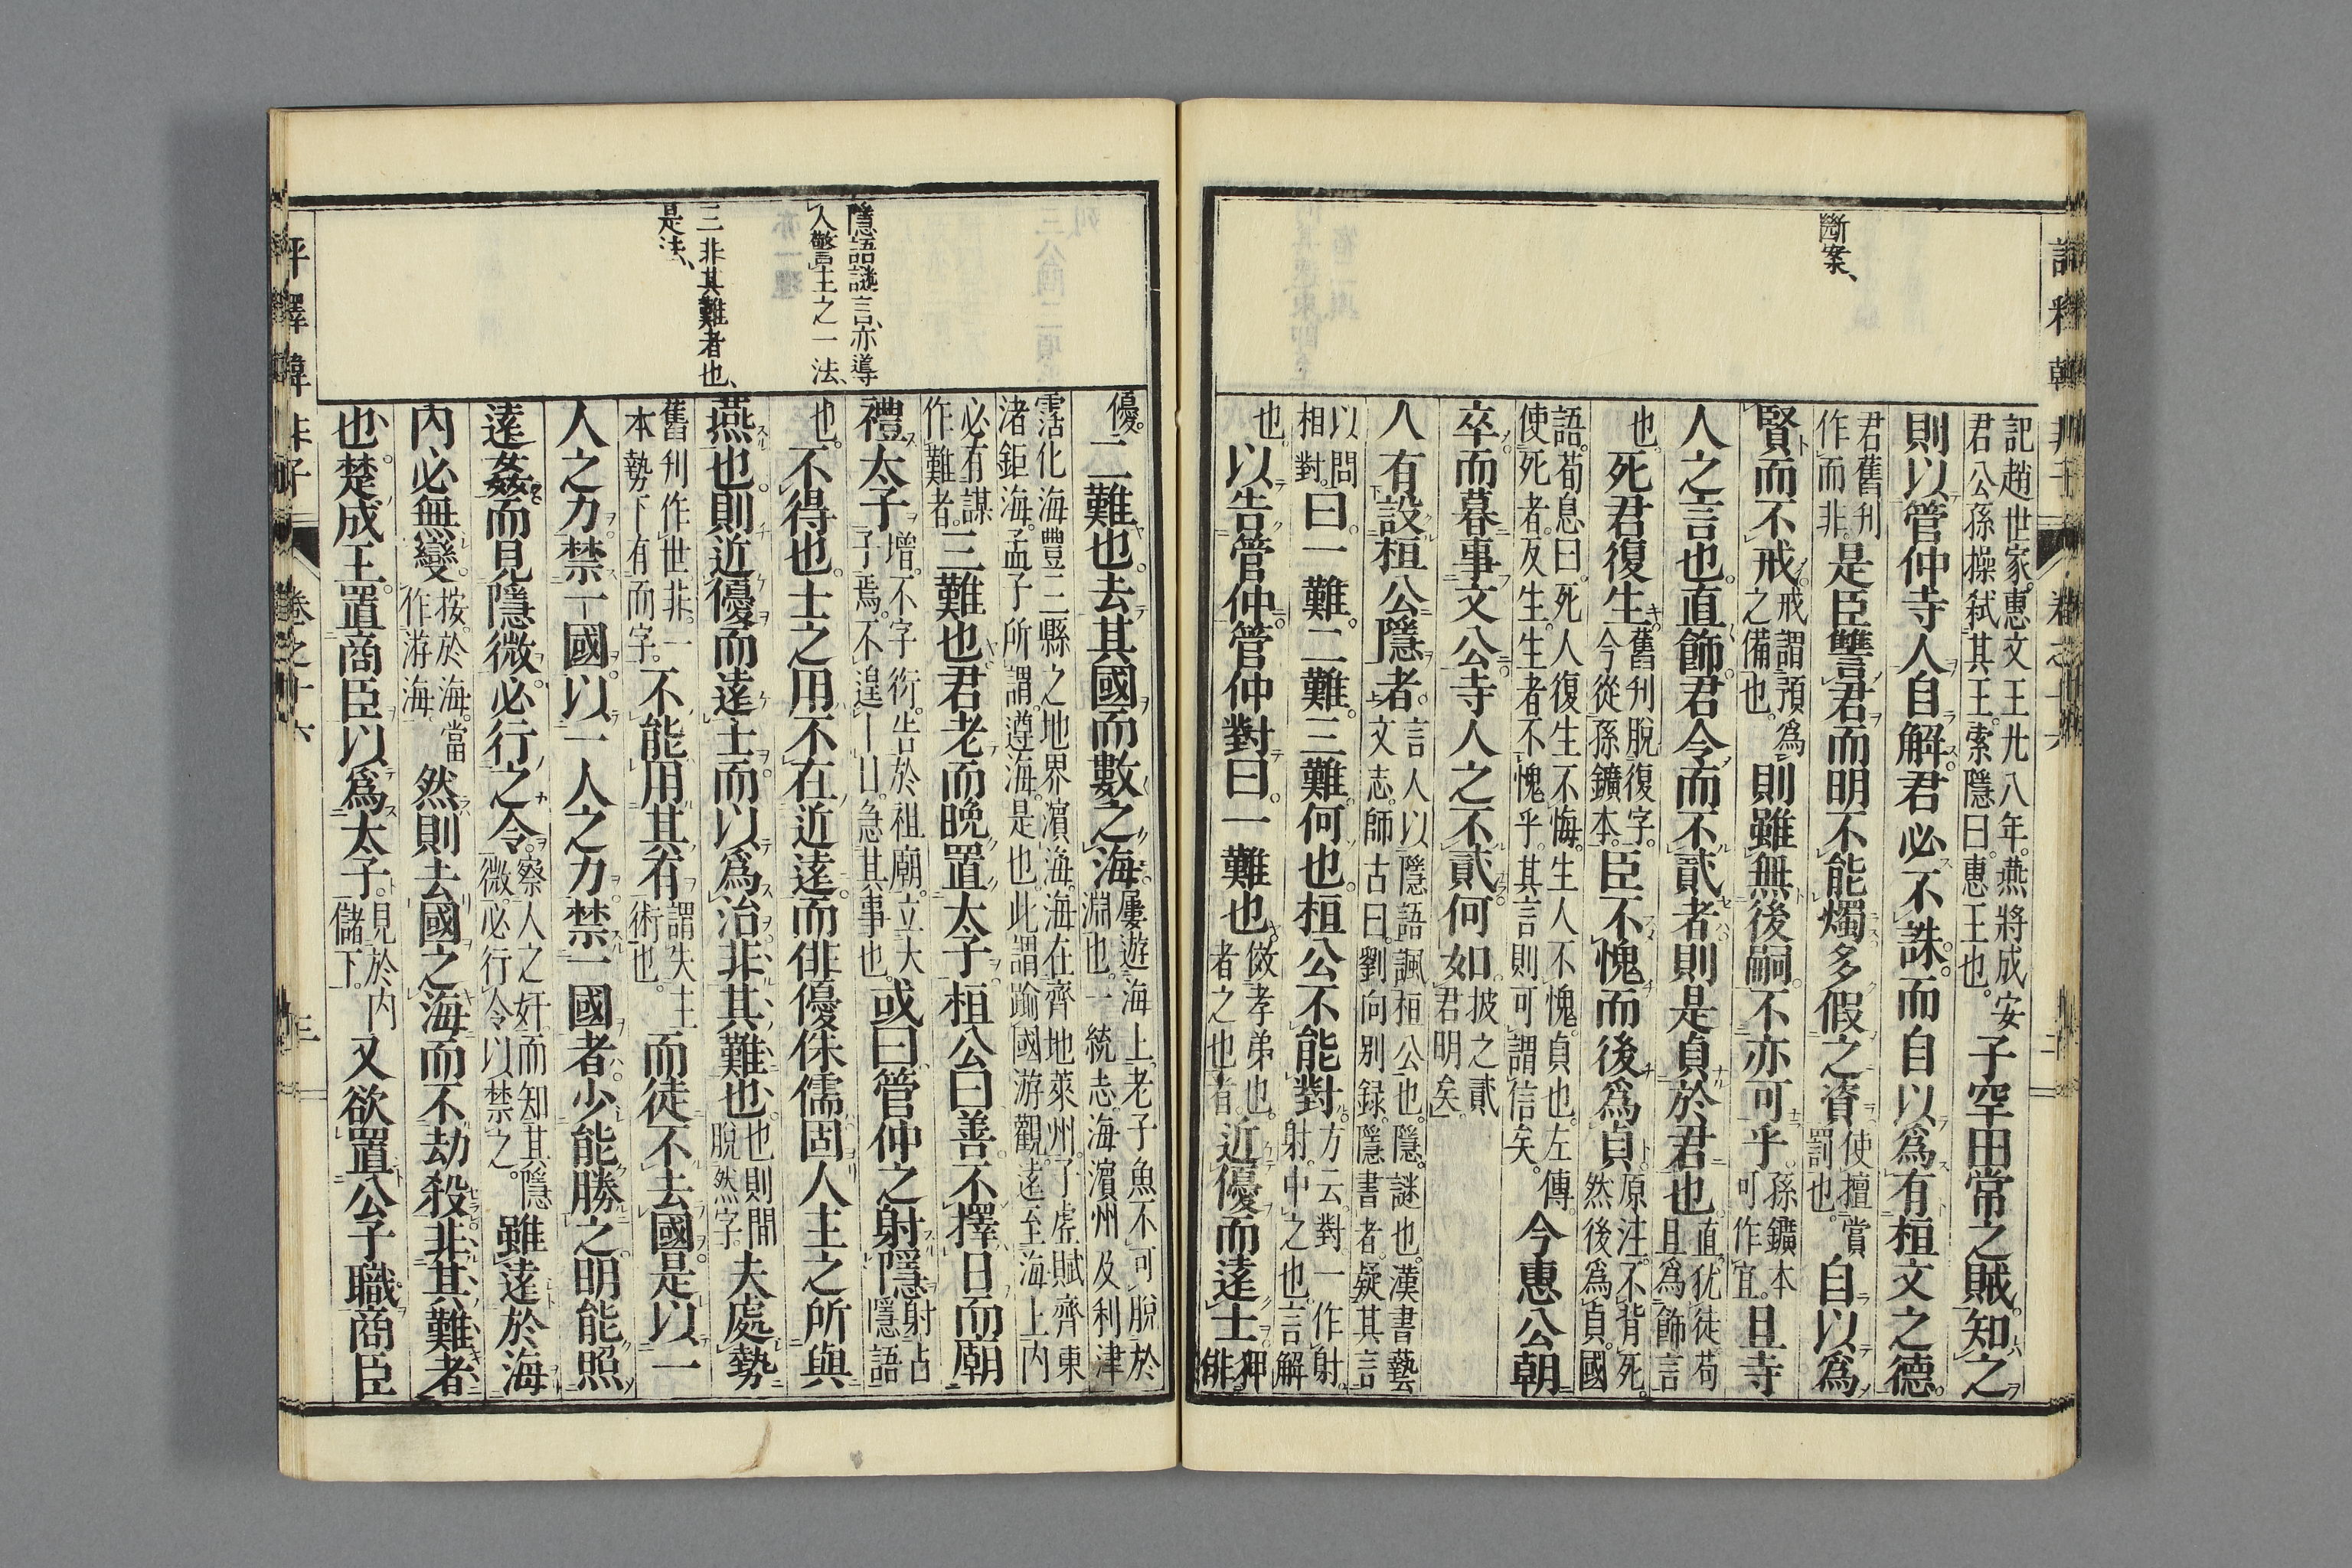 斷案、
記趙世家惠文王卄八年。燕將成安
君公孫操弑其王。索隱曰。惠王也。
子罕田常之賊。知之
則以管仲寺人自解。君必不誅。而自以爲有桓文之德。
君舊刋
作而非。
是臣讐君而明不能燭。多假之資。
使擅賞
罰也。
自以爲
賢而不戒。
戒謂預爲
之備也。
則雖無後嗣。不亦可乎。
孫鑛本
可作宜。
且寺
人之言也。直飾。君令而不貳者。則是貞於君也。
直。犹徒。苟
且爲飾言
也。
死君復生。
舊刋脫復字。
今從孫鑛本。
臣不愧而後爲貞。
原注。不背死。
然後爲貞。國
語。荀息曰。死人復生不悔。生人不愧。貞也。左傳。
使死者。反生。生者不愧乎。其言則可謂信矣。
今惠公朝
卒而暮事文公。寺人之不貳何如。
披之貳
君明矣。
人有設桓公隱者。
言人以隱語諷桓公也。隱。謎也。漢書藝
文志。師古曰。劉向別録。隱書者。疑其言
以問
相對。
曰。一難。二難。三難。何也。桓公不能對。
方云。對一作射。
射。中之也。言解
也。
以告管仲。管仲對曰。一難也。
倣孝弟也。
者之也者。
近優而遠士。
狎
俳
隱語謎言、亦導
人警主之一法、
三非其難者也、
是法、
優。
二難也。去其國而數之海。
屢遊海上。老子魚不可脫於
淵也。一統志。海濱州及利津
霑化海豐三縣之地界濱海。海在齊地萊州。了虛賦齊東
渚鉅海。孟子所謂遵海。是也。此謂踰國游觀。遠至海上。内
必有謀
作難者。
三難也。君老而晚置太子。桓公曰。善。不擇日而廟
禮太子。
增。不字衍。告於祖廟。立大
子焉。不遑卜日。急其事也。
或曰。管仲之射隱。
射占
隱語
也。
不得也。士之用不在近遠。而俳優侏儒。固人主之所與
燕也。則近優而遠士。而以爲治。非其難也。
也則間
脫然字。
夫處勢
舊刋作世非。一
本勢下有而字。
不能用其有。
謂失主
術也。
而徒不去國。是以一
人之力。禁一國。以一人之力。禁一國者。少能勝之。明能照
遠姦。而見隱微。必行之令。
察人之奸。而知其隱
微。必行令以禁之。
雖遠於海
内必無變。
按。於海。當
作游海。
然則去國之海而不劫殺。非其難者
也。楚成王。置商臣以爲太子。
見於内
儲下。
又欲置公子職。商臣
評釋韓非子
卷之十六
三